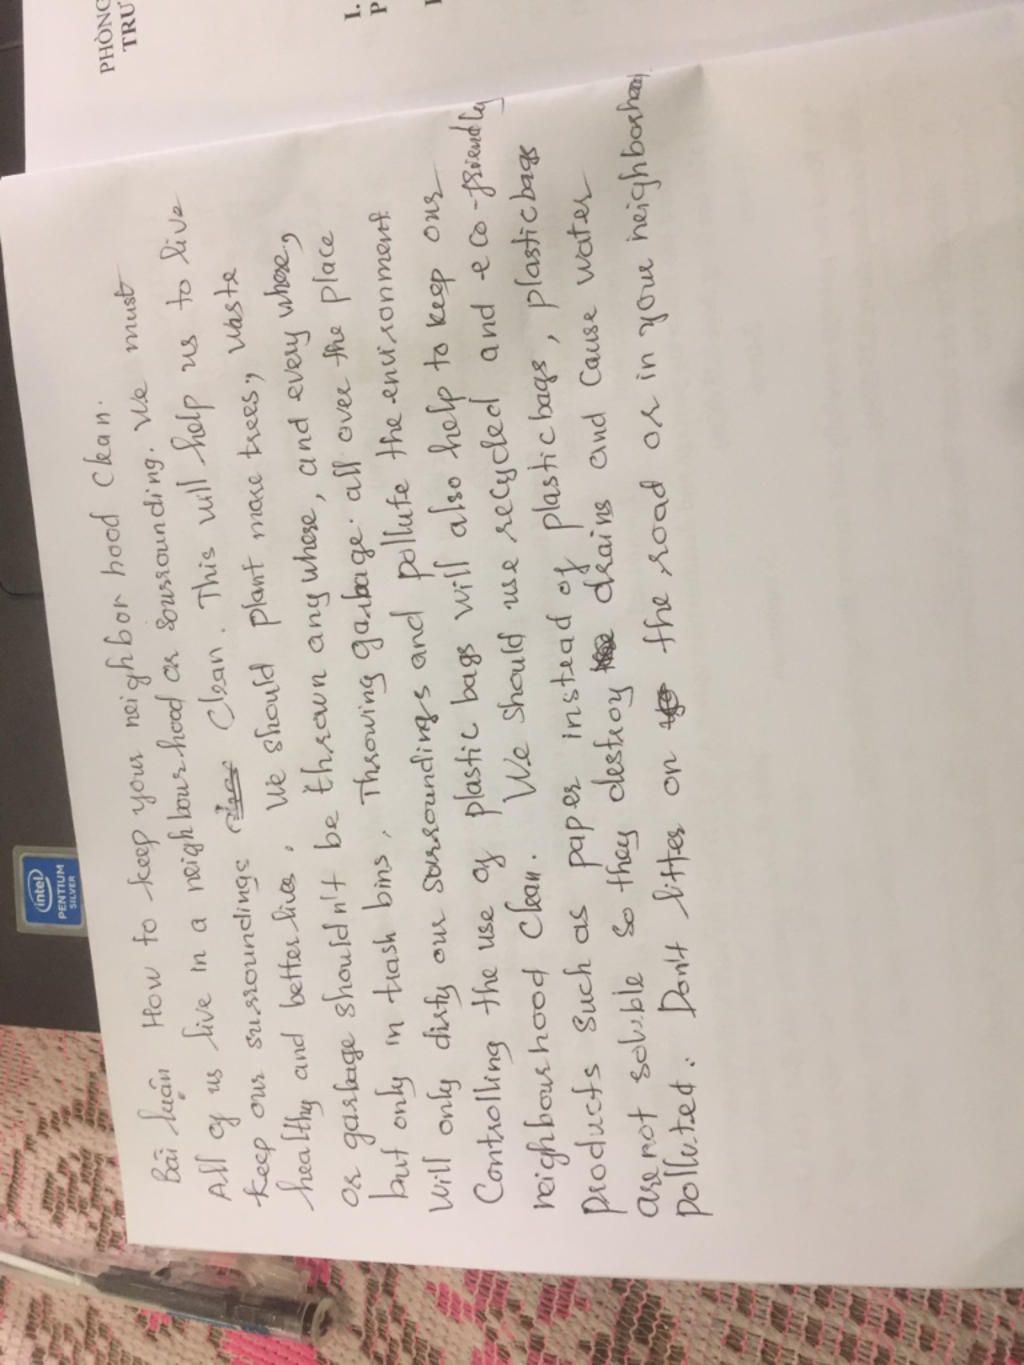 PHÒNG
TRƯ
I.
P
intel
PENTIUM
SILVER
Bài luận How to keep your neighbor hood clean.
All of us live in a neighbourhood or sourrounding. We must
keep our surroundings clean. This will help us to live
healthy and better lives. We should plant more trees, waste
or garbage shouldn't be thrown any where, and every where,
but only in trash bins. Throwing garbage all over the place
will only dirty our sourroundings and pollute the environment
Controlling the use of plastic bags will also help to keep our
neighbourhood clean. We should use recycled and eco-friendly
products such as paper instead of plastic bags, plastic bags
are not soluble so they destroy drains and cause water
polluted. Don't litter on the road or in your neighborhood.